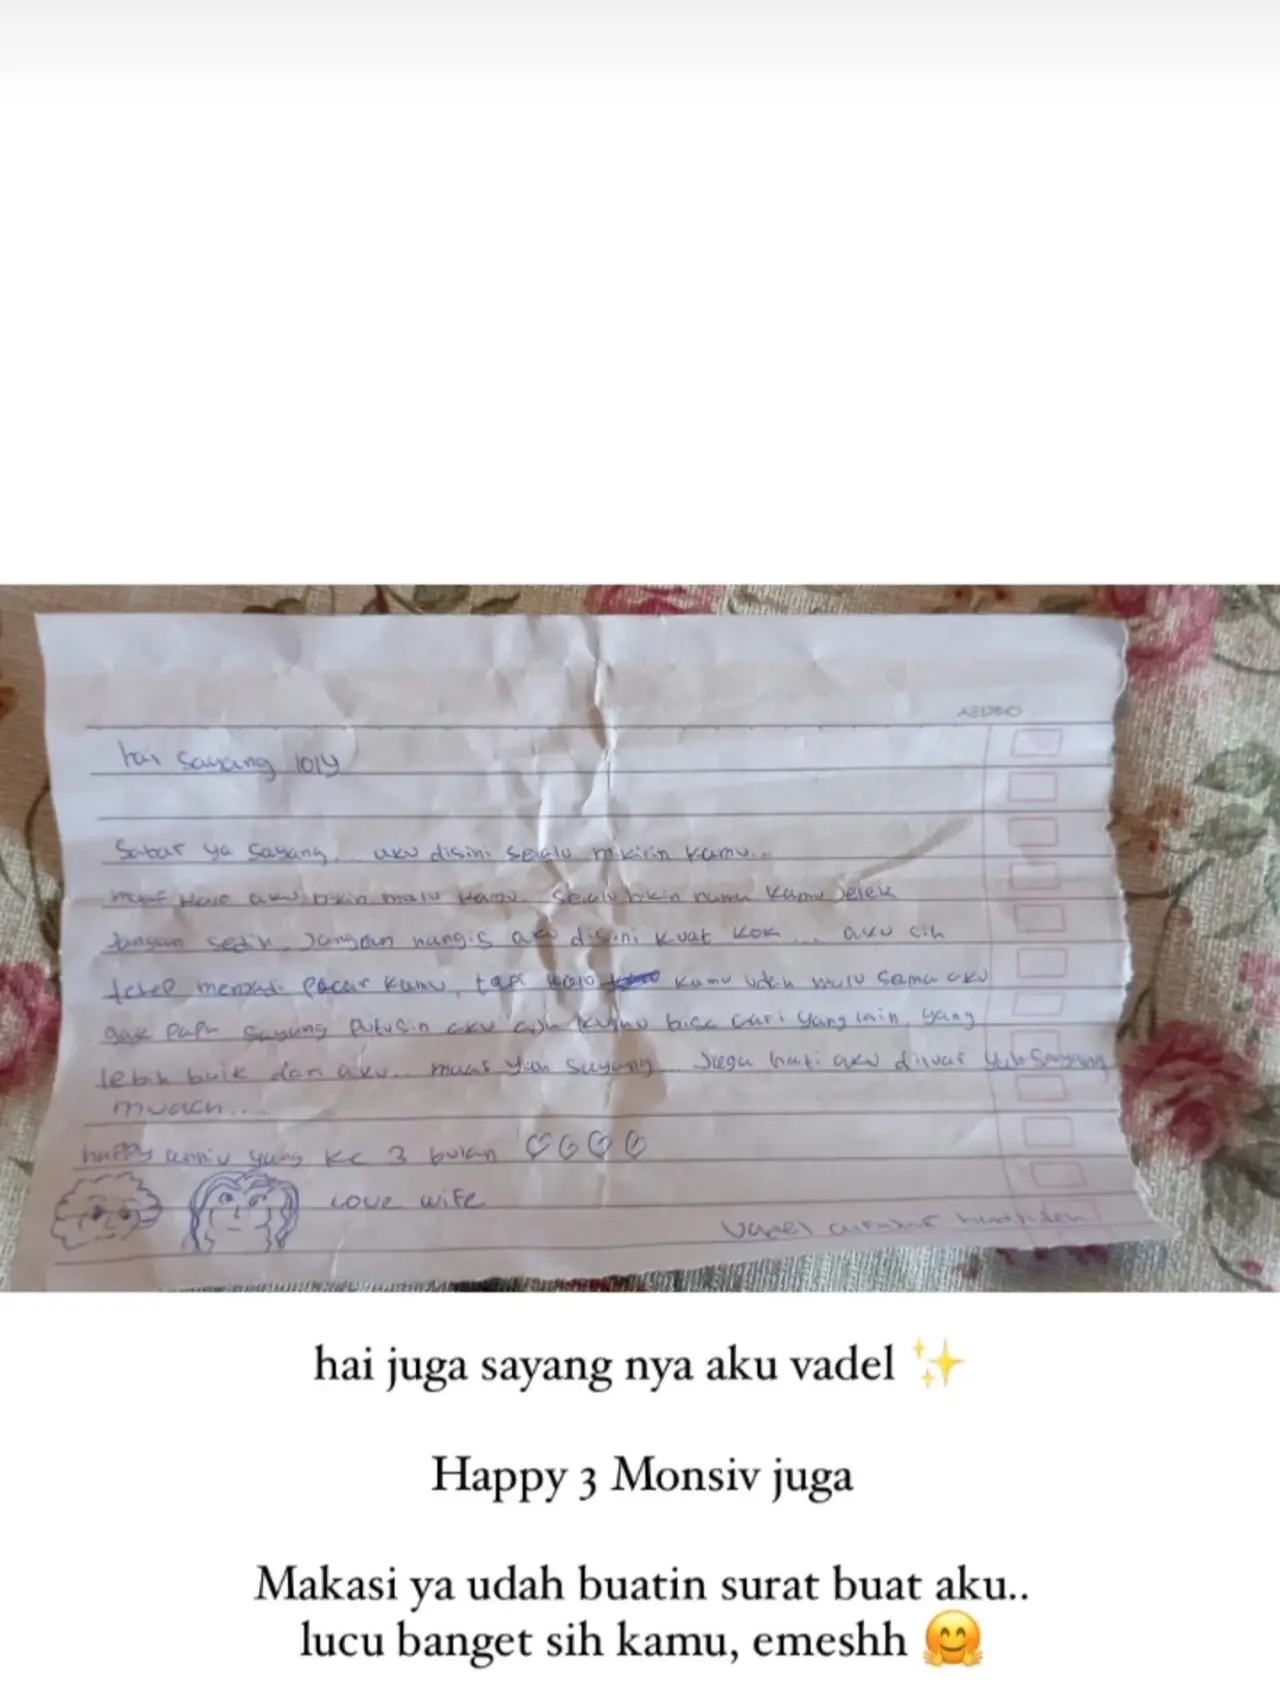 hai sayang loly
Sabar ya sayang... aku disini selalu mikirin kamu...
maaf kalo aku bikin malu kamu. Selalu bikin nama kamu Jelek
Jangan sedih, Jangan nangis aku disini kuat kok... aku sih
tetep menjadi pacar kamu, tapi kalo kamu udah malu sama aku
gak papa sayang putusin aku ajh kamu bisa cari yang lain, yang
lebih baik dari aku.. maaf yah sayang.. Jaga hati aku diluar yah sayang
muach....
happy anniv yang ke 3 bulan
Love wife
Vadel
hai juga sayang nya aku vadel ✨
Happy 3 Monsiv juga
Makasi ya udah buatin surat buat aku..
lucu banget sih kamu, emeshh 🤗